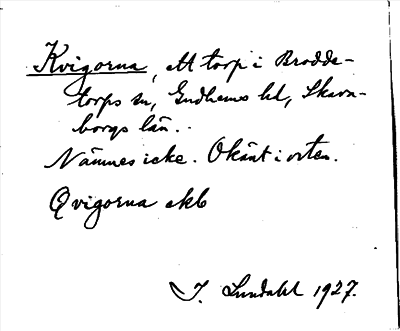 Kvigorna, ett torp i Brodde-
torps sn, Gudhems hd, Skara-
borgs län.
Nämnes icke. Okänt i orten.
Qvigorna ekb
I. Lundahl 1927.